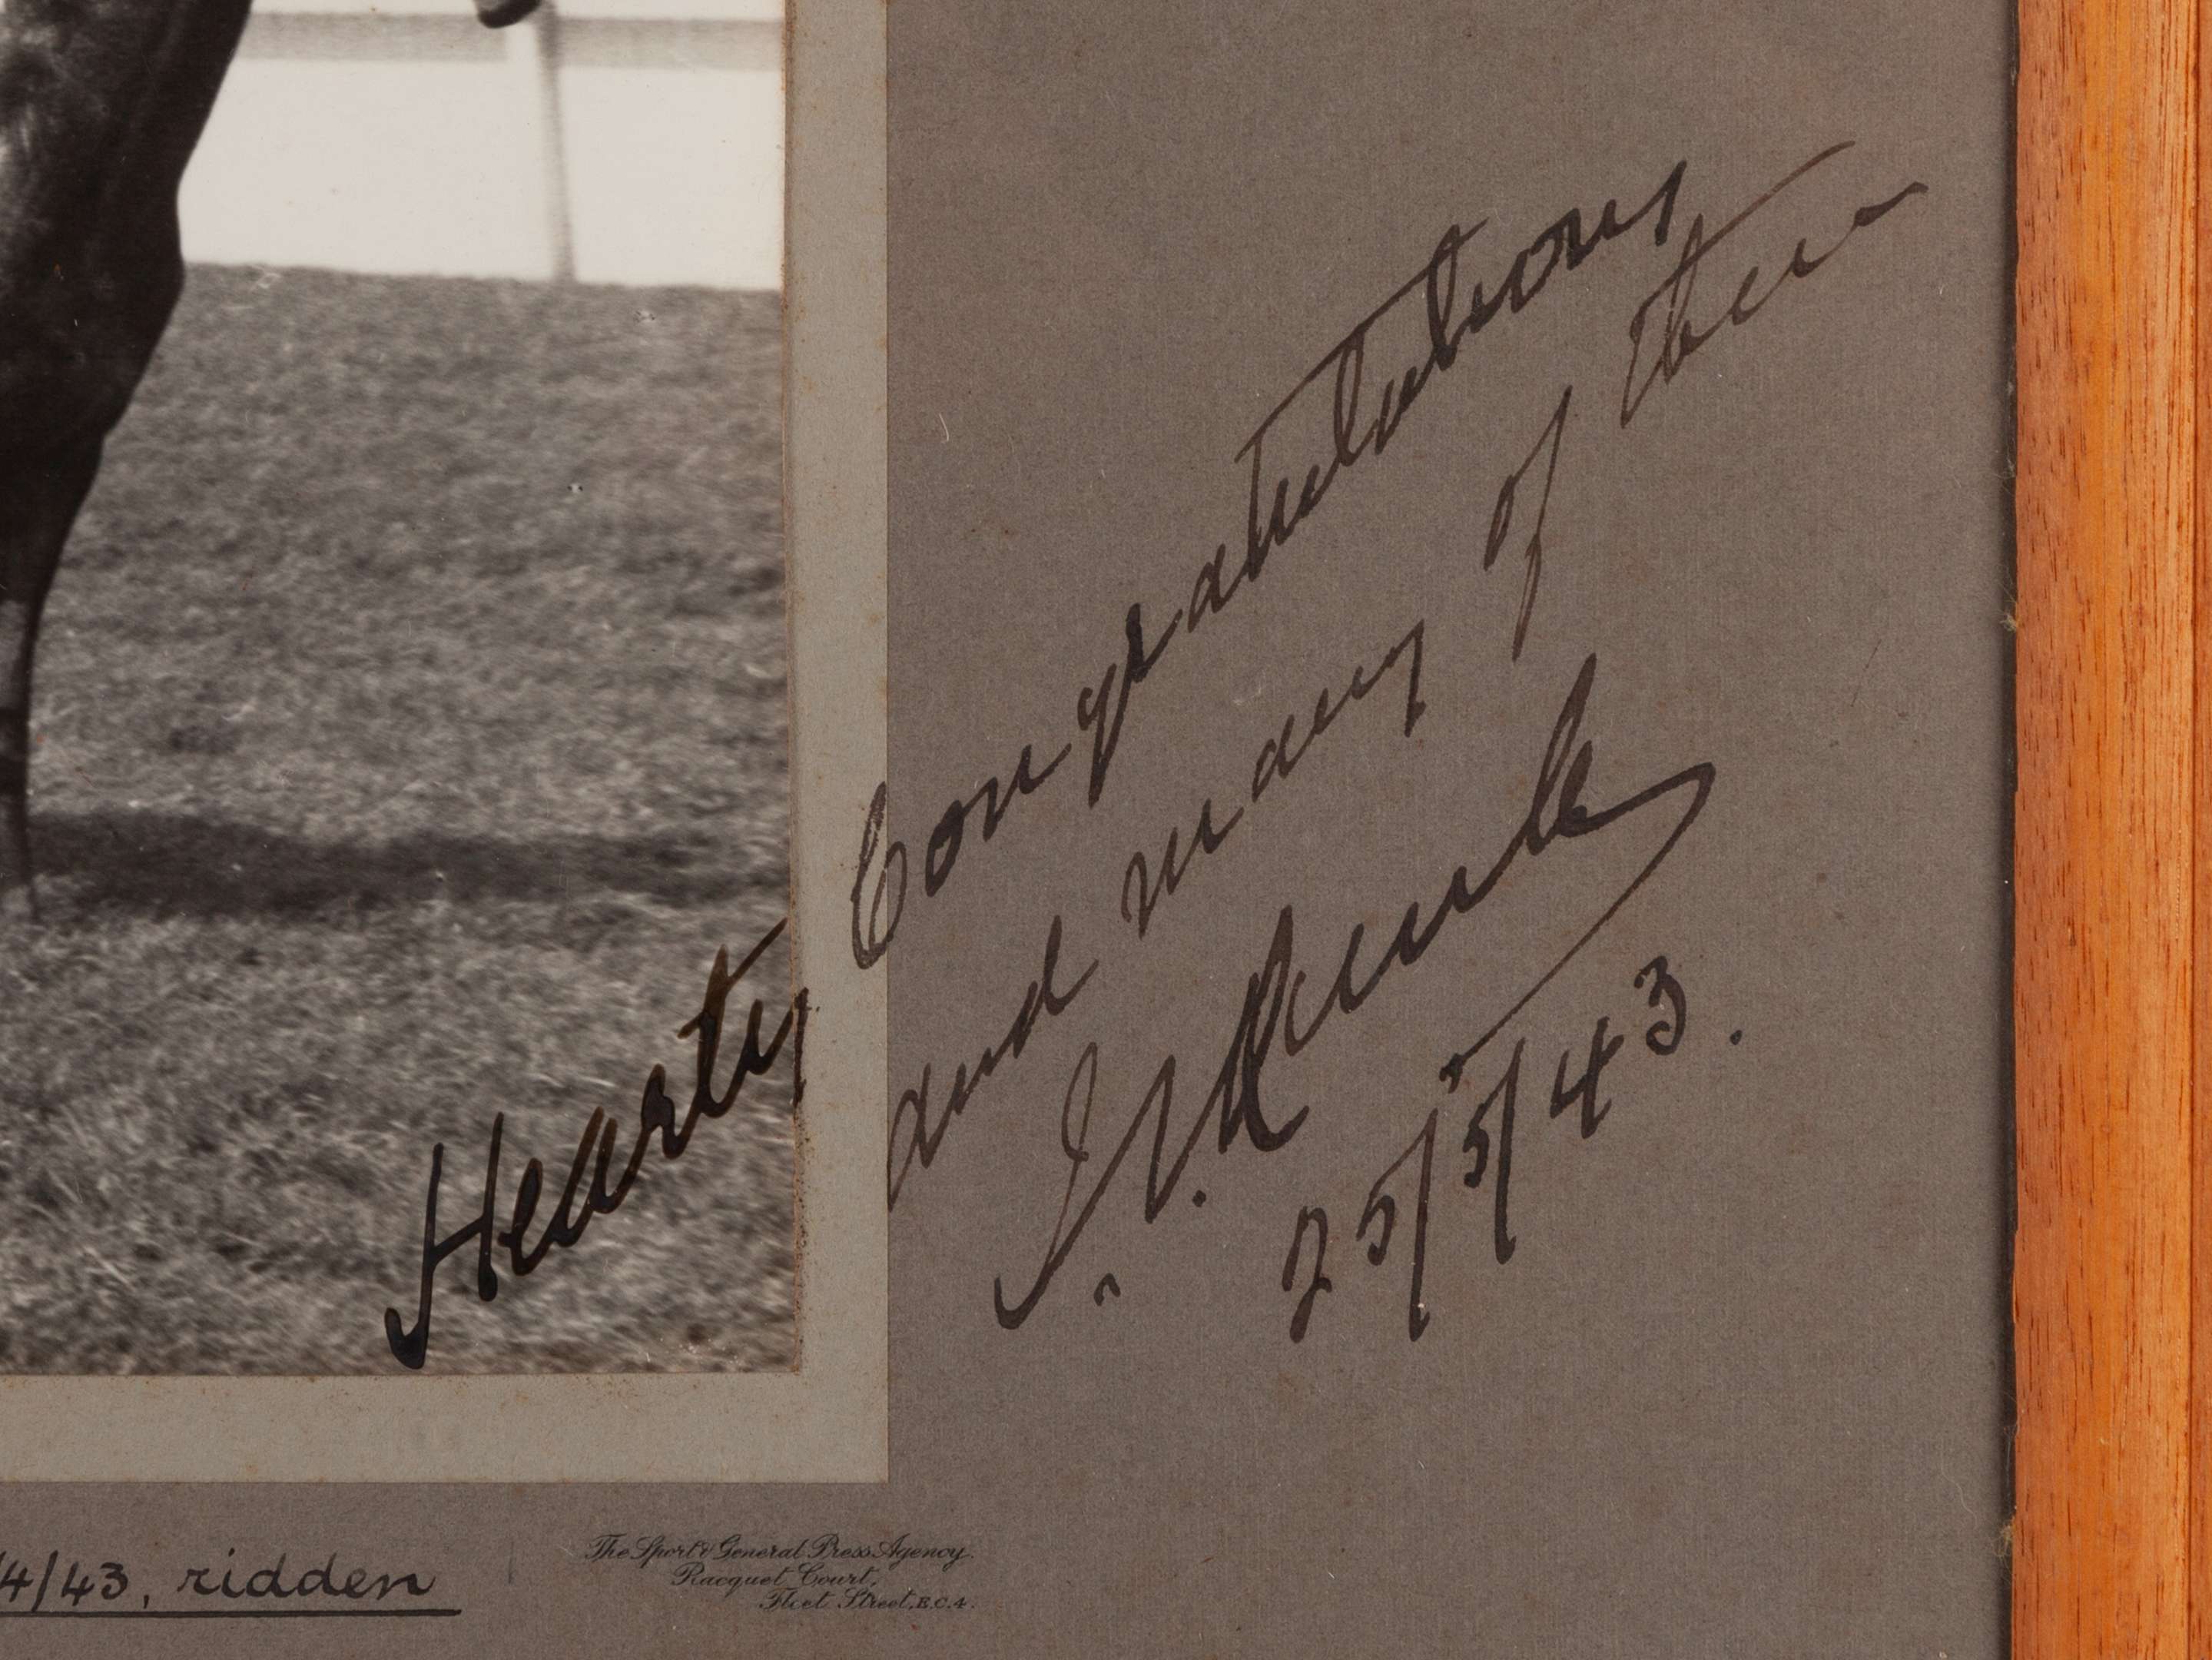 Hearty Congratulations
and many of them
J. V. Rank
25/5/43.
4/43, ridden
The Sport & General Press Agency.
Racquet Court,
Fleet Street, E.C.4.